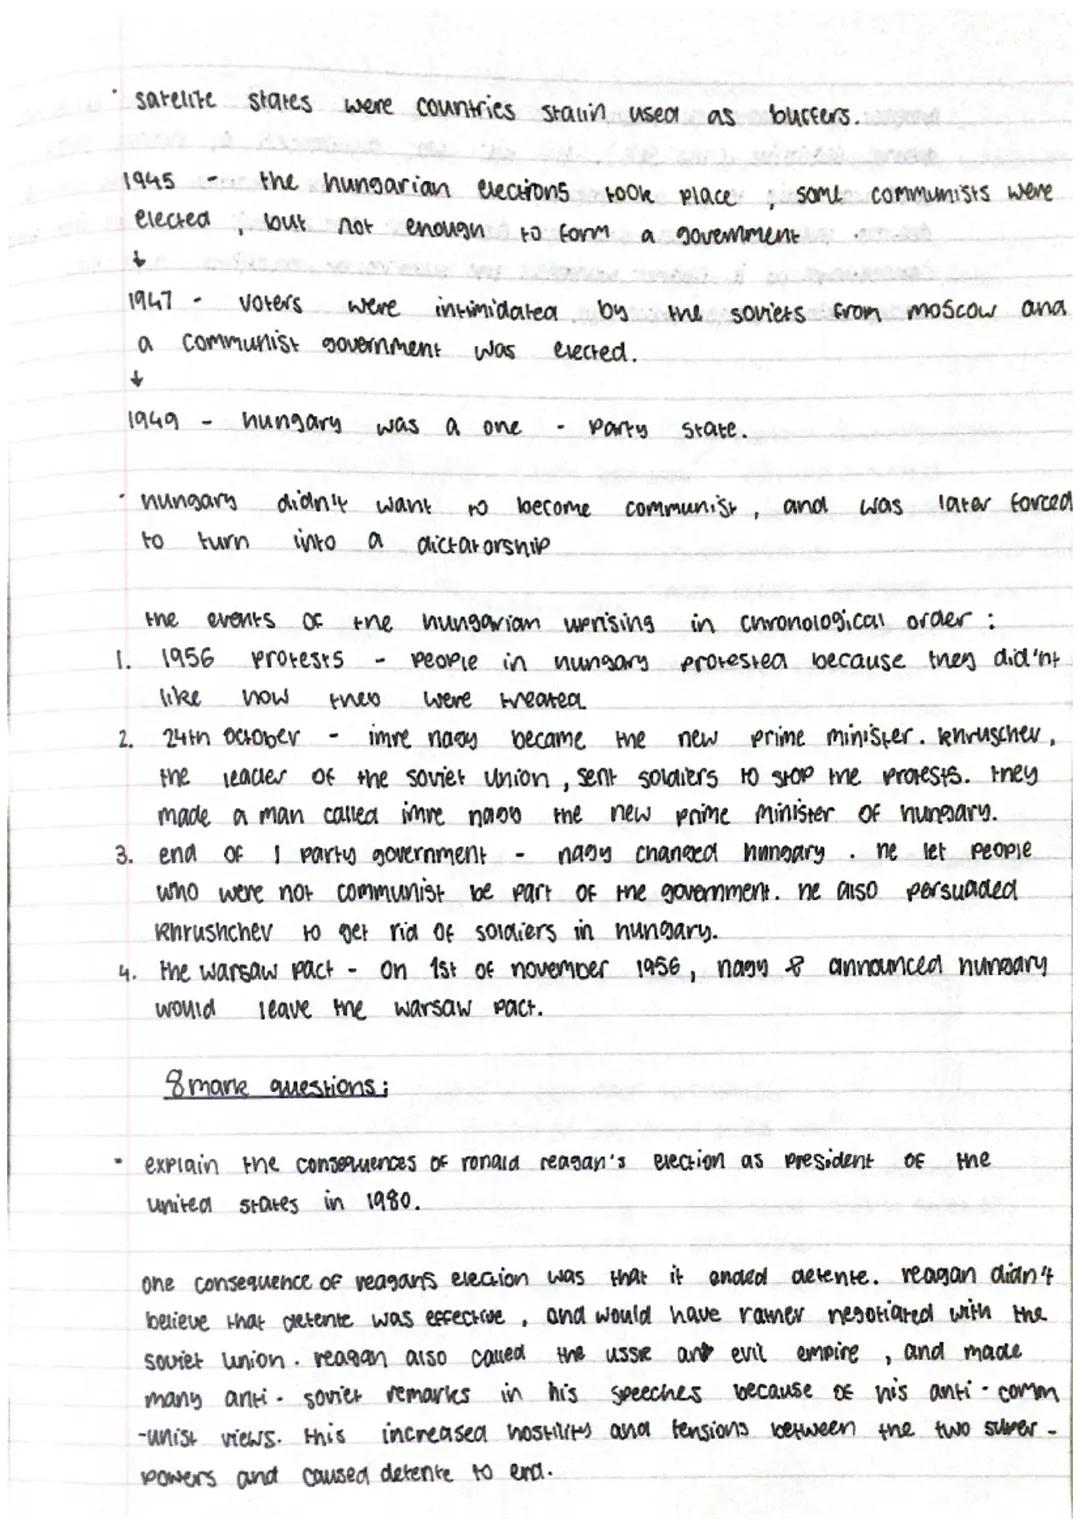 · satelite states were countries stalin used as buffers.
1945 - the hungarian elections took place, some communists were
elected, but not enough to form a government.
↓
1947 - voters were intimidated by the soviets from moscow and
a communist government was elected.
↓
1949 - hungary was a one - party state.
· hungary didn't want to become communist, and was later forced
to turn into a dictatorship
the events of the hungarian uprising in chronological order:
1. 1956 protests - people in hungary protested because they did'nt
like how they were treated
2. 24th october - imre nagy became the new prime minister. khruschev,
the leader of the soviet union, sent soldiers to stop the protests. they
made a man called imre nagy the new prime minister of hungary.
3. end of 1 party government - nagy changed hungary. he let people
who were not communist be part of the government. he also persuaded
khrushchev to get rid of soldiers in hungary.
4. the warsaw pact - on 1st of november 1956, nagy announced hungary
would leave the warsaw pact.
8 mark questions:
· explain the consequences of ronald reagan's election as president of the
united states in 1980.
one consequence of reagans election was that it ended detente. reagan didn't
believe that detente was effective, and would have rather negotiated with the
soviet union. reagan also called the ussr an evil empire, and made
many anti-soviet remarks in his speeches because of his anti-comm
-unist views. this increased hostility and tensions between the two super-
powers and caused detente to end.